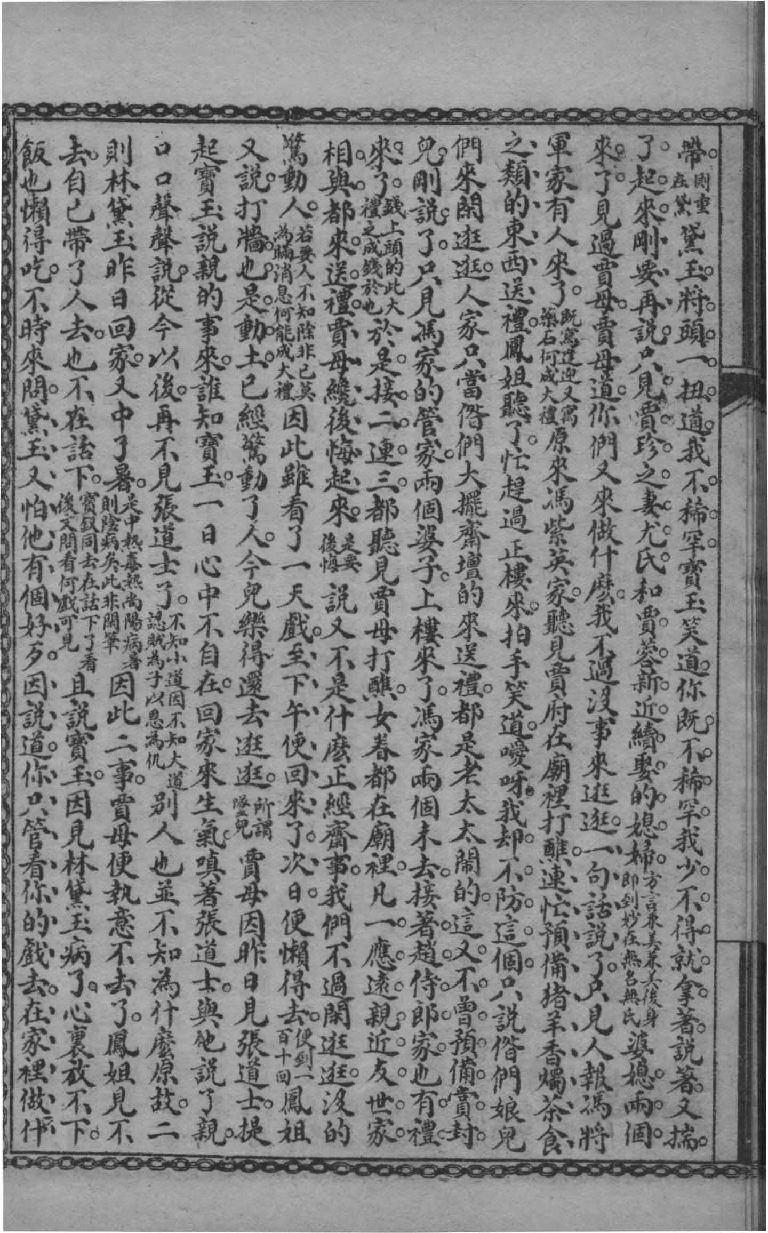 帶則重在黛黛玉將頭一扭道我不稀罕寶玉笑道你既不稀罕我少不得就拿著說著又揣
了起來剛要再說只見賈珍之妻尤氏和賈蓉新近續娶的媳婦方言秉美兼美後身即到妙在無名無氏婆媳兩個
來了見過賈母賈母道你們又來做什麽我不過沒事來逛逛一句話說了只見人報馮將
軍家有人來了既寫逢迎又寓藥石何成大禮原來馮紫英家聽見賈府在廟裡打醮連忙預備猪羊香燭茶食
之類的東西送禮鳳姐聽了忙趕過正樓來拍手笑道噯呀我却不防這個只說偺們娘兒
們來閑逛逛人家只當偺們大擺齋壇的來送禮都是老太太鬧的這又不曾預備賞封
兒剛說了只見馮家的管家兩個婆子上樓來了馮家兩個未去接著趙侍郎家也有禮
來了錢上頭的此大禮之成錢於也於是接二連三都聽見賈母打醮女眷都在廟裡凡一應遠親近友世家
相與都來送禮賈母纔後悔起來是要後悔說又不是什麽正經齋事我們不過閑逛逛沒的
驚動人若要人不知除非已莫為瞞消息何能成大禮因此雖看了一天戲至下午便回來了次日便懶得去便到一百十回鳳姐
又說打牆也是動土已經驚動了人今兒樂得還去逛逛所謂墜兒賈母因昨日見張道士提
起寶玉說親的事來誰知寶玉一日心中不自在回家來生氣嗔著張道士與他說了親
口口聲聲說從今以後再不見張道士了不知小道因不知大道認賊為子以恩為仇別人也並不知為什麽原故二
則林黛玉昨日回家又中了暑是中熱毒熱尚陽病暑則陰病矣此非閒筆因此二事賈母便執意不去了鳳姐見不
去自己帶了人去也不在話下寶釵同去在話下了看後文問看何戲可見且說寶玉因見林黛玉病了心裏放不下
飯也懶得吃不時來問黛玉又怕他有個好歹因說道你只管看你的戲去在家裡做什